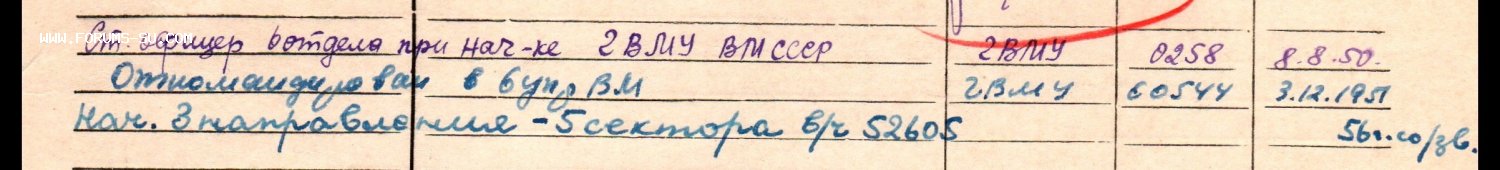 WWW.FORUMS-SU.COM
Ст. офицер 6 отдела при нач-ке 2 ВМУ ВМ СССР 2 ВМУ 0258 8.8.50.
Откомандирован в 6 упр ВМ 2 ВМУ 60544 3.12.1951
Нач. 3 направления - 5 сектора в/ч 52605 56г. со/зв.